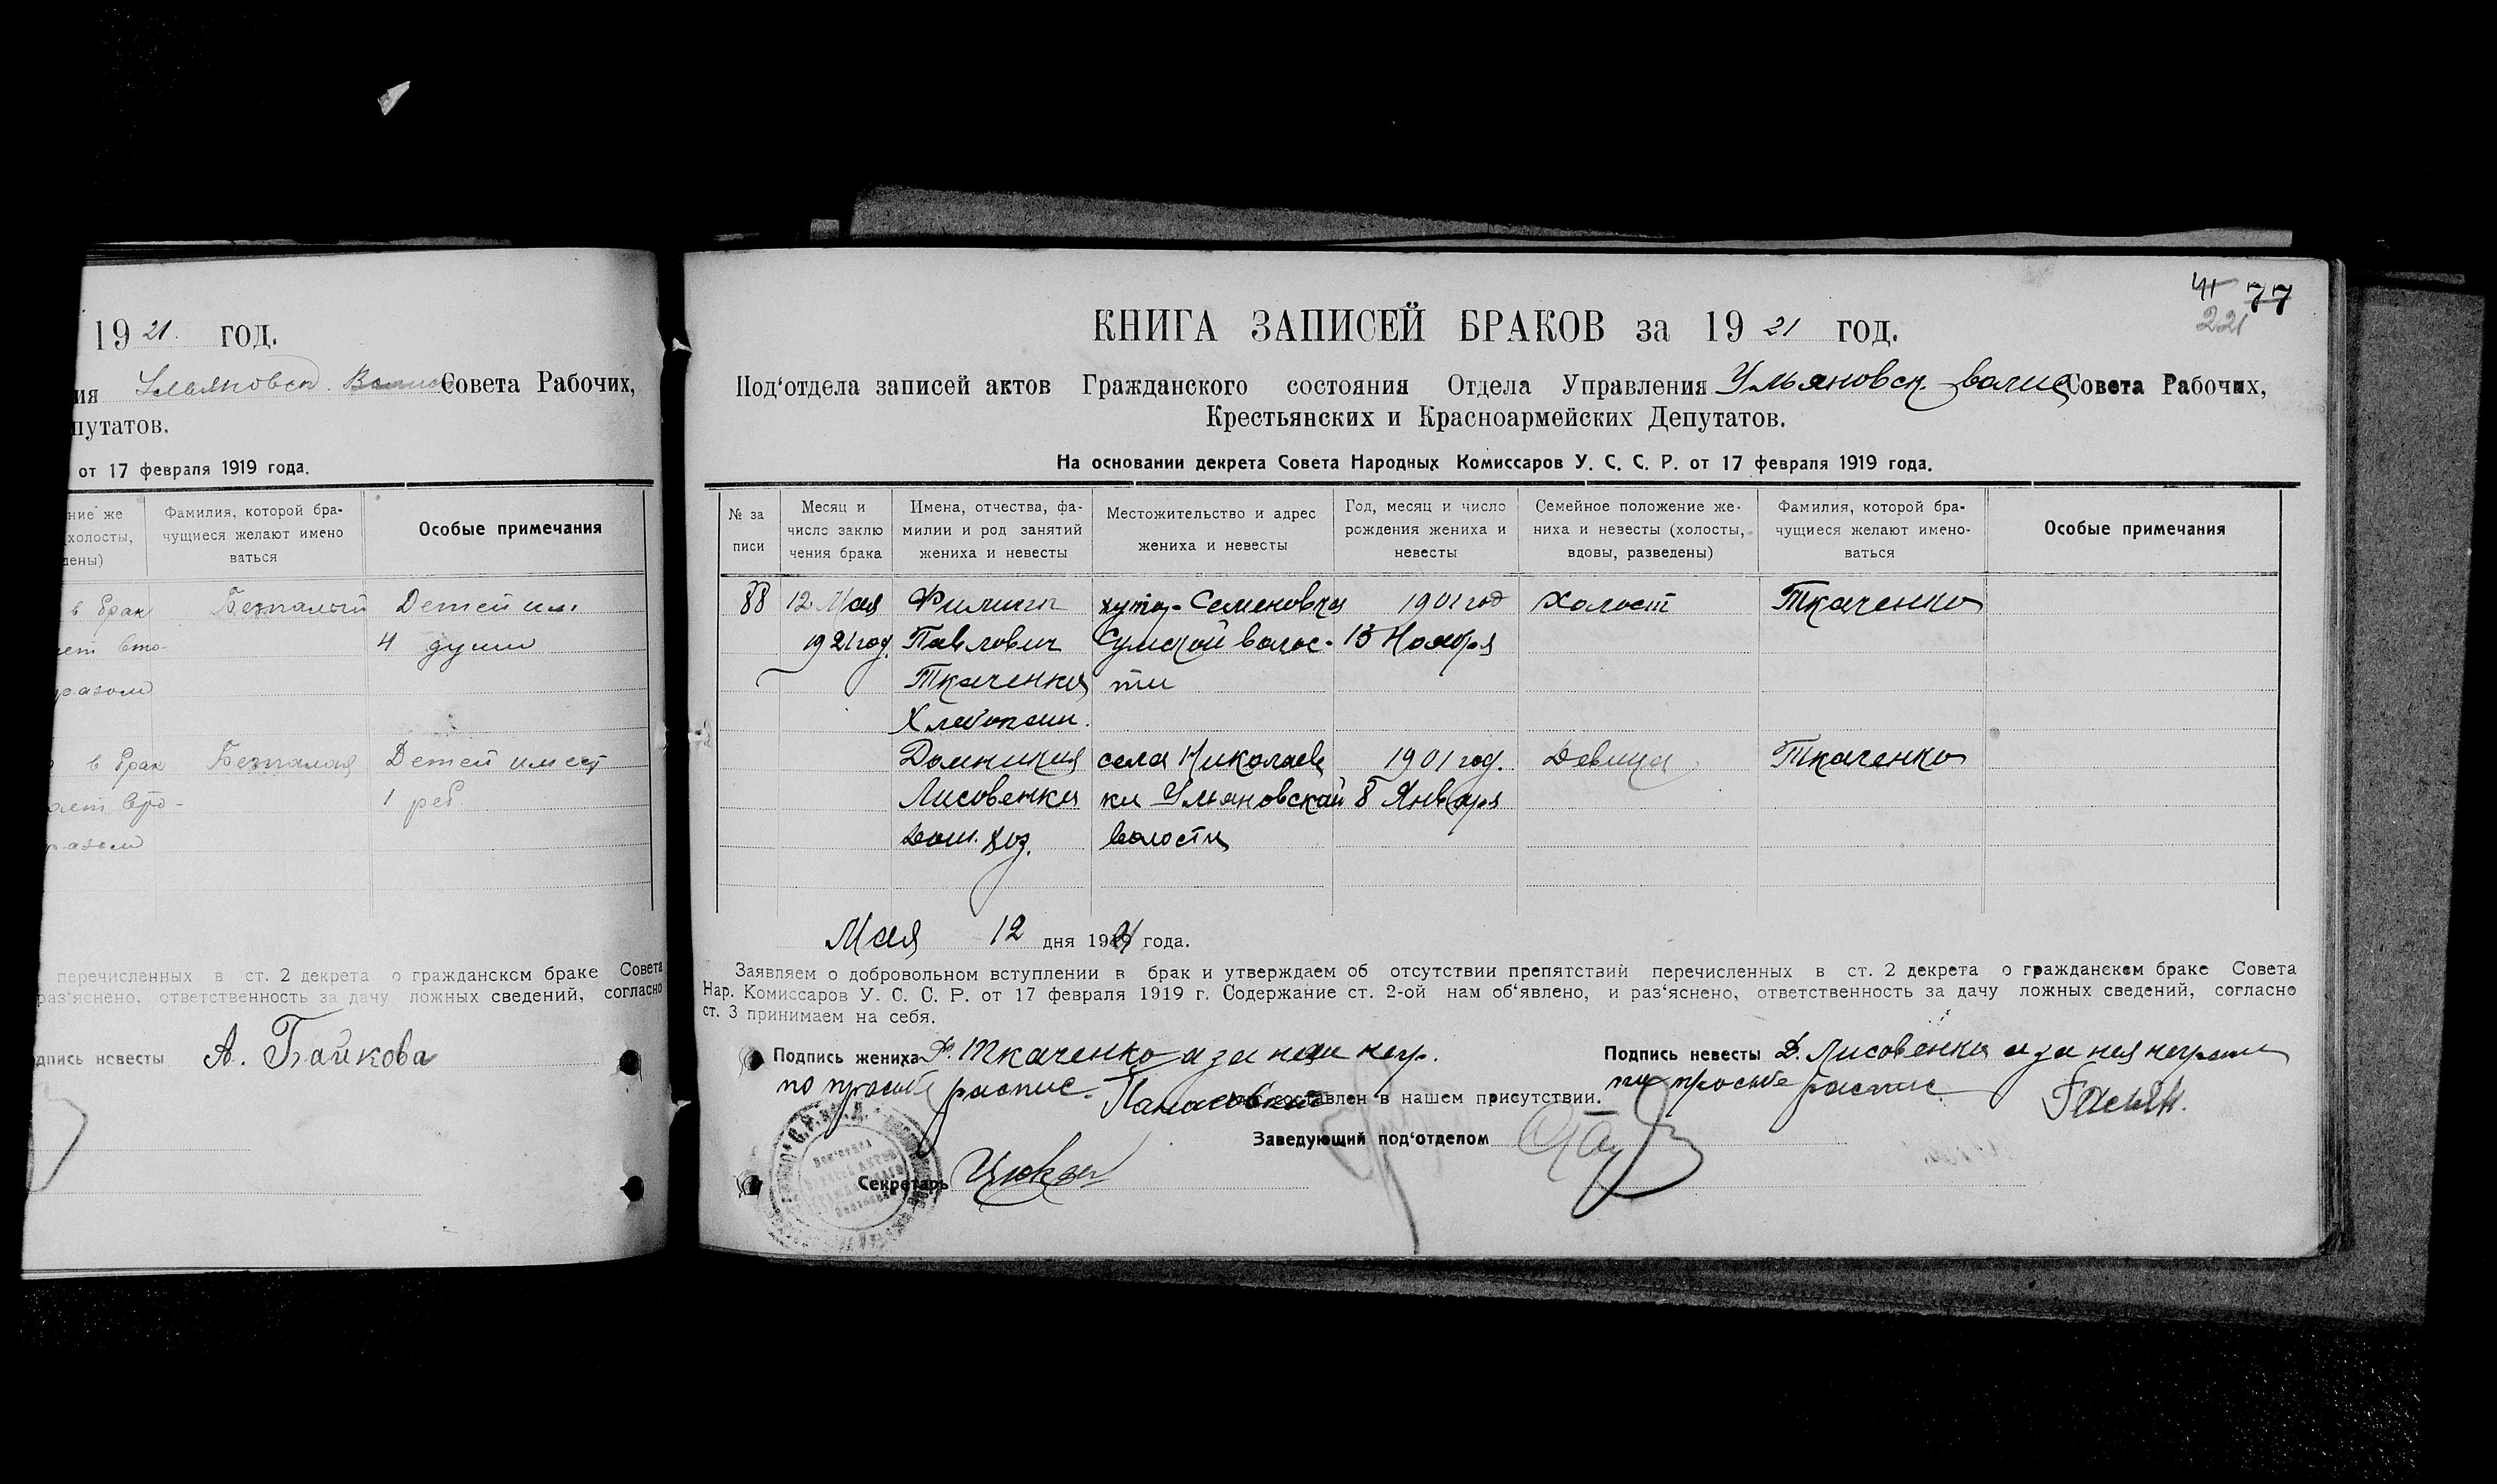 1921 год.
ия Ульяновск. Совета Рабочих,
путатов.
от 17 февраля 1919 года.
ние же
(холосты,
дены)
Фамилия, которой бра-
чущиеся желают имено
ваться
Особые примечания
в брак Безпалый Детей им.
4 души
разом
в брак Безпалая Детей имеет
1 реб.
перечисленных в ст. 2 декрета о гражданском браке Совета
раз'яснено, ответственность за дачу ложных сведений, согласно
дпись невесты А. Байкова
41 77
221
КНИГА ЗАПИСЕЙ БРАКОВ за 1921 год.
Под'отдела записей актов Гражданского состояния Отдела Управления Ульяновск. волис Совета Рабочих,
Крестьянских и Красноармейских Депутатов.
На основании декрета Совета Народных Комиссаров У. С. С. Р. от 17 февраля 1919 года.
№ за
писи
Месяц и
число заклю
чения брака
Имена, отчества, фа-
милии и род занятий
жениха и невесты
Местожительство и адрес
жениха и невесты
Год, месяц и число
рождения жениха и
невесты
Семейное положение же-
ниха и невесты (холосты,
вдовы, разведены)
Фамилия, которой бра-
чущиеся желают имено-
ваться
Особые примечания
88 12 Мая Филипп хутор-Семеновка 1901 год Холост Ткаченко
1921 год. Павлович Сумской волос- 13 Ноября
Ткаченко ти
Хлебопаш.
Домникия села Николаев 1901 год. Девица Ткаченко
Лисовенко ки Ульяновской 8 Января
дом. хоз. волости
Мая 12 дня 1921 года.
Заявляем о добровольном вступлении в брак и утверждаем об отсутствии препятствий перечисленных в ст. 2 декрета о гражданском браке Совета
Нар. Комиссаров У. С. С. Р. от 17 февраля 1919 г. Содержание ст. 2-ой нам об'явлено, и раз'яснено, ответственность за дачу ложных сведений, согласно
ст. 3 принимаем на себя.
Подпись жениха Ф. Ткаченко а за негр.
по просьбе распис.
Подпись невесты Д. Лисовенко а за нея неграм
по просьбе распис
составлен в нашем присутствии.
Заведующий под'отделом
Секретарь